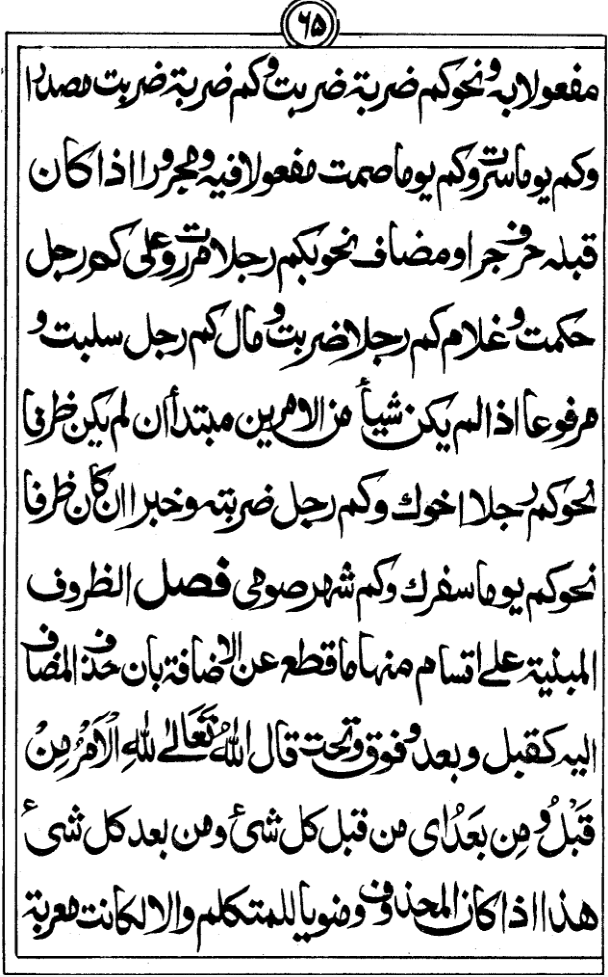 ۶۵
مفعولا به ونحو كم ضربة ضربت وكم ضربة ضربت مصدرا
وكم يوما سرت وكم يوما صمت مفعولا فيه ومجرورا اذا كان
قبله حرف جر او مضاف نحو بكم رجلا مررت وعلى كم رجل
حكمت وغلام كم رجلا ضربت ومال كم رجل سلبت و
مرفوعا اذا لم يكن شيأ من الامرين مبتدأ ان لم يكن ظرفا
نحو كم رجلا اخوك وكم رجل ضربته وخبرا ان كان ظرفا
نحو كم يوما سفرك وكم شهر صومى فصل الظروف
المبنية على اقسام منها ما قطع عن الاضافة بان حذف المضاف
اليه كقبل وبعد وفوق وتحت قال اللهُ تَعَالٰى لِلّٰهِ الْاَمْرُ مِنْ
قَبْلُ وَمِن بَعْدُ اى من قبل كل شئ ومن بعد كل شئ
هذا اذا كان المحذوف منويا للمتكلم والا لكانت معربة